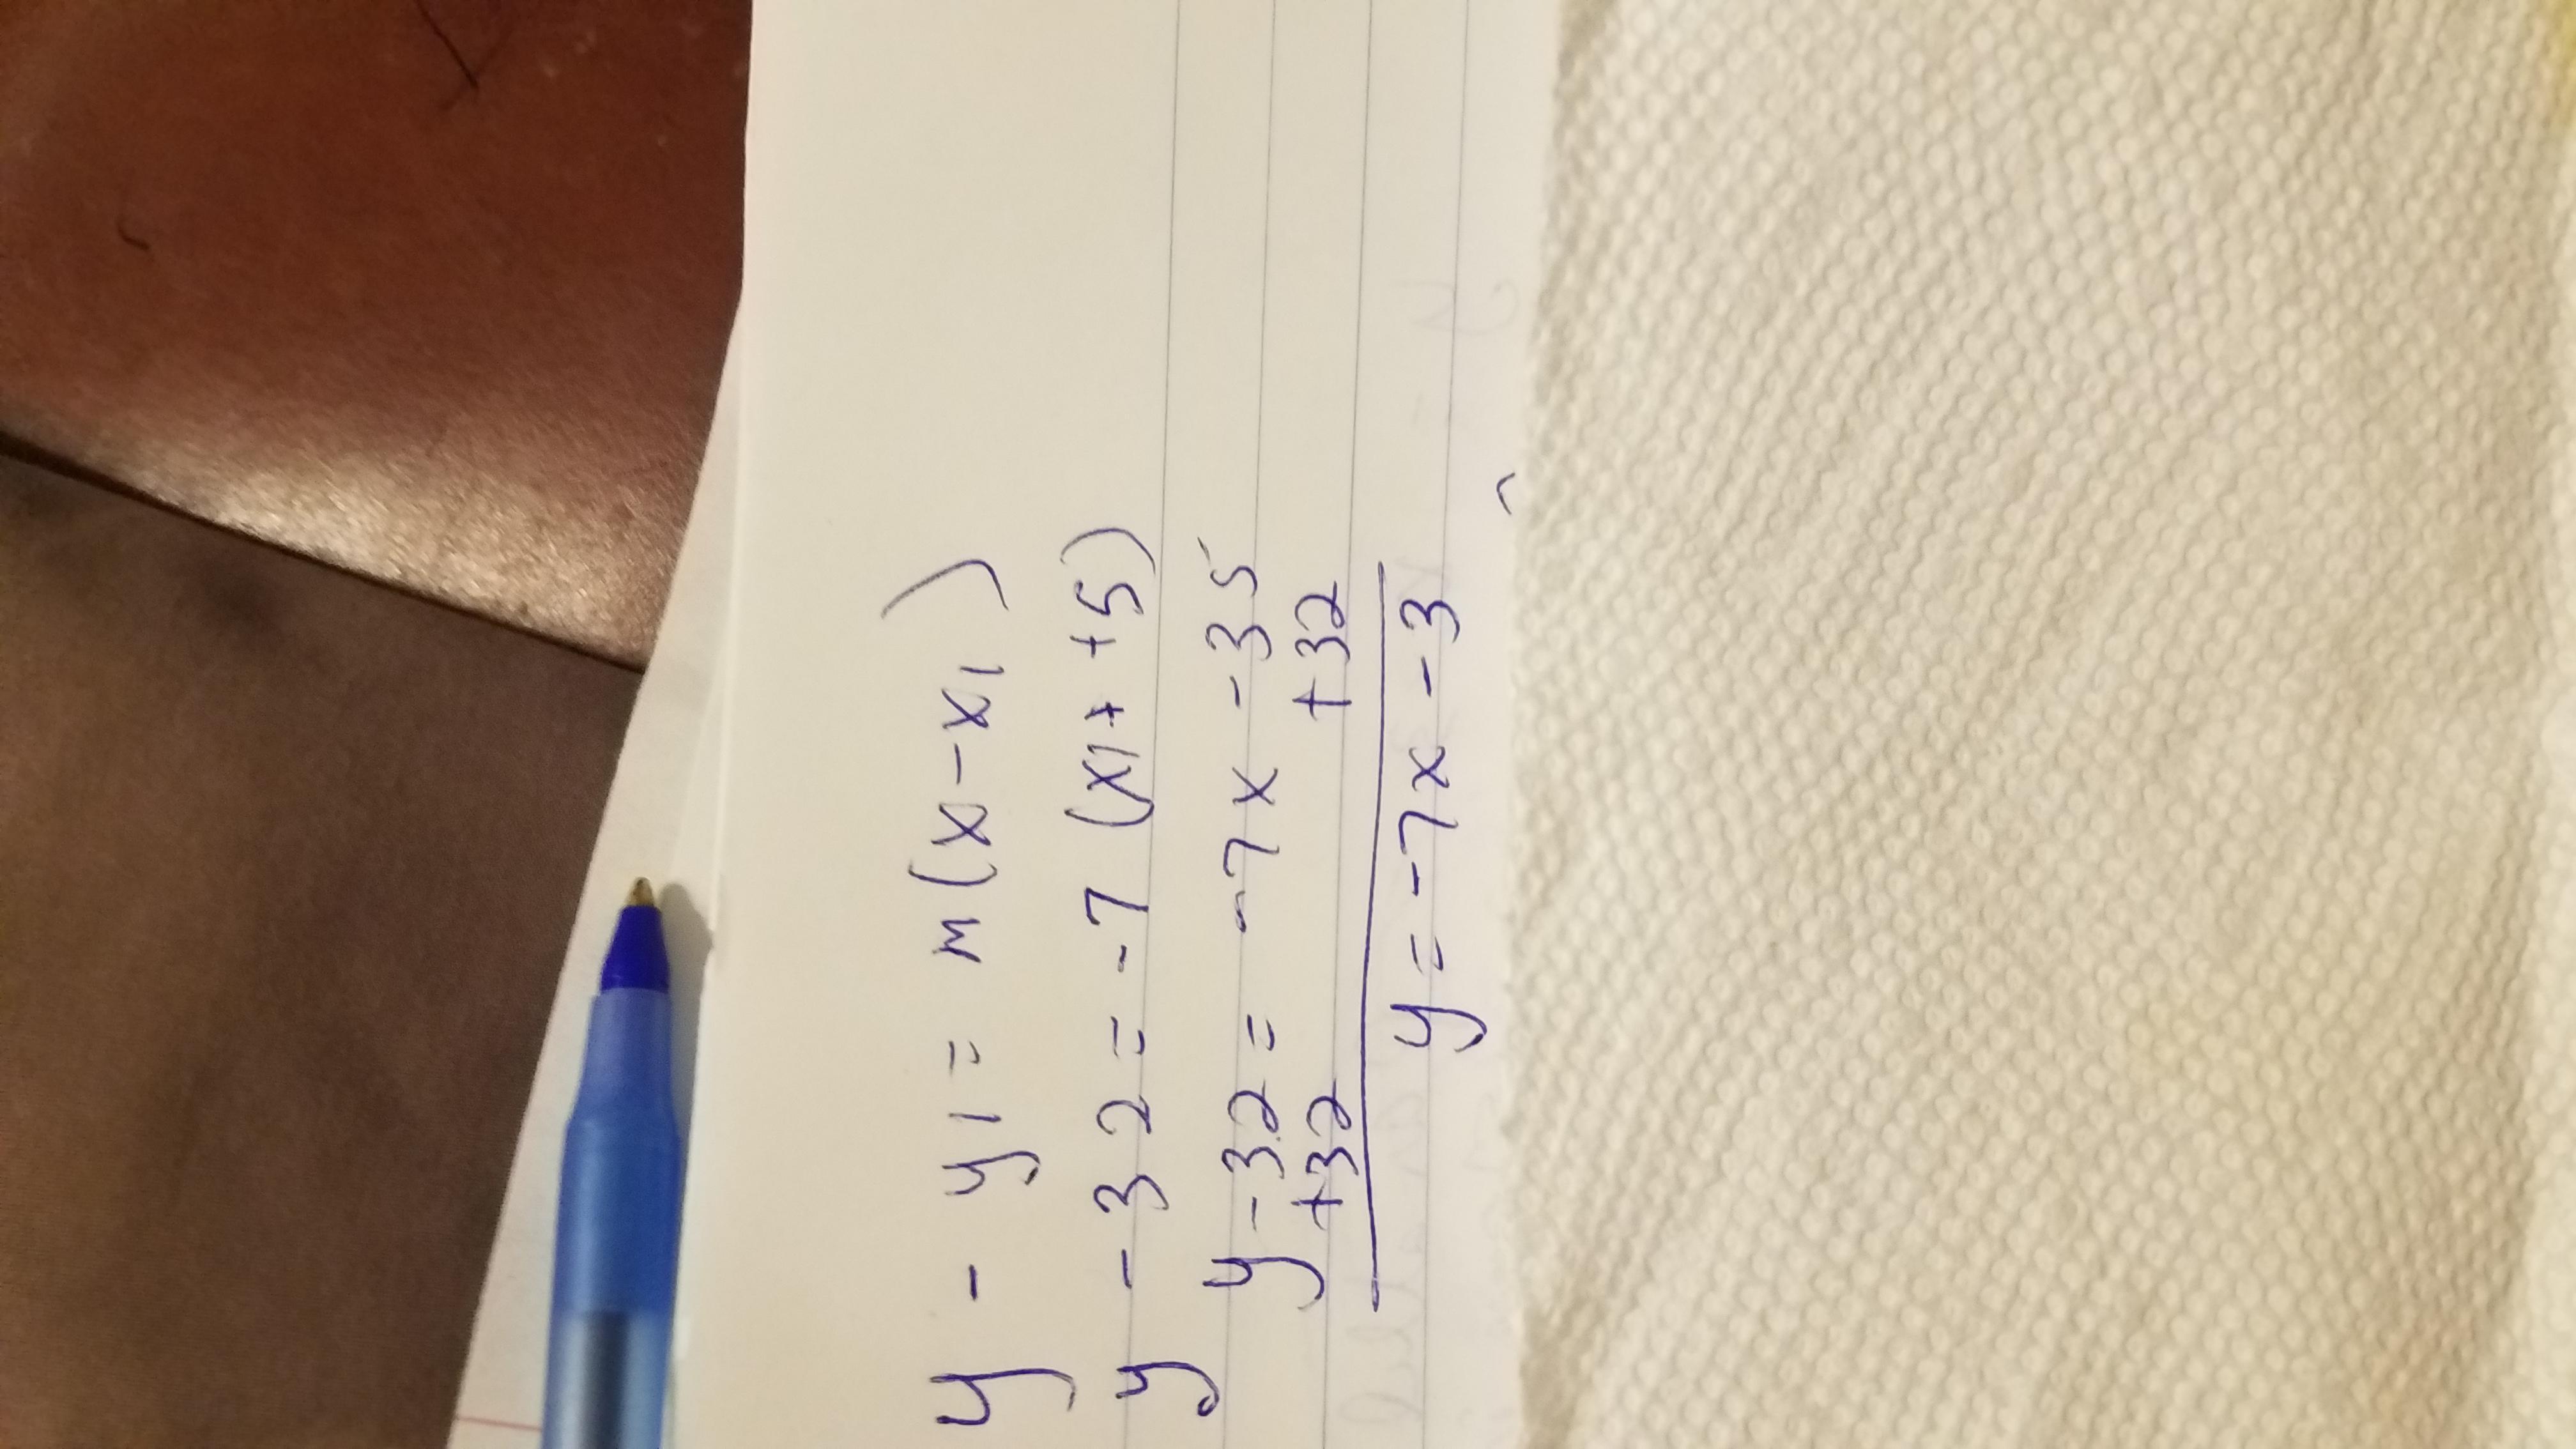 y - y1 = m(x-x1)
y - 32 = -7 (x1+ +5)
y-32 = -7x -35
+32 +32
y = -7x -3